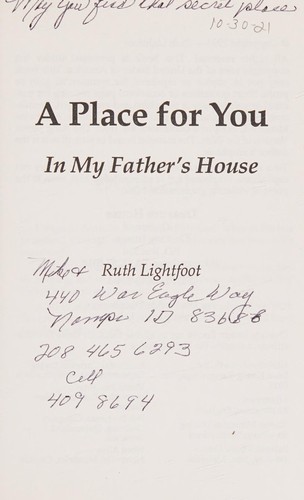 May you find that secret place
10-30-21
A Place for You
In My Father's House
Mike & Ruth Lightfoot
440 War Eagle Way
Nampa ID 83686
208 465 6293
Cell
409 8694